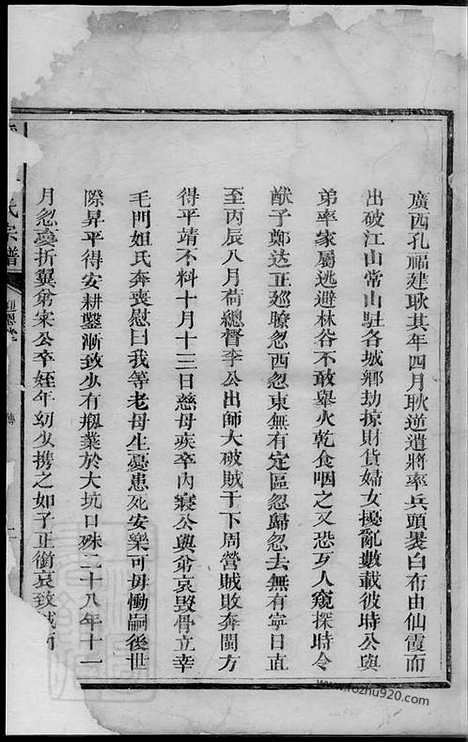 廣西孔福建耿其年四月耿逆遣將率兵頭裂白布由仙霞而
出破江山常山駐各城鄉劫掠財貨婦女擾亂數載彼時公與
弟率家屬逃避林谷不敢舉火乾食咽之又恐歹人窺探時令
猷子鄭达正廵瞭忽西忽東無有定區忽歸忽去無有寧日直
至丙辰八月荷總督李公出師大破賊于下周營賊敗奔閩方
得平靖不料十月十三日慈母疾卒內寢公與弟哀毀骨立幸
毛門妲氏奔喪慰曰我等老母生憂患死安樂可毋慟嗣後世
際昇平得安耕鑿漸致少有搬業於大坑口殊二十八年十一
月忽憂折翼弟宋公卒姪年幼少撫之如子正銜哀致
氏宗譜
www.fozhu920.com